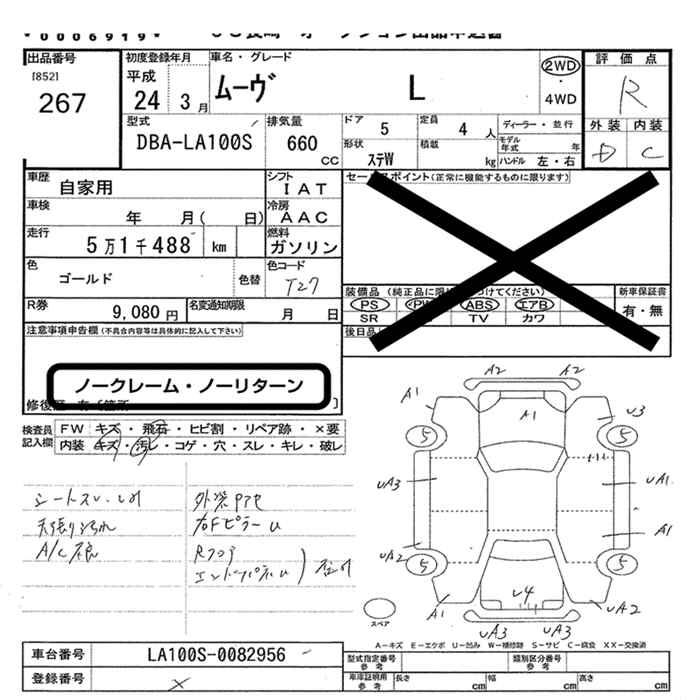 *0006919*
出品番号
[852]
267
初度登録年月
平成
24 3月
車名・グレード
ムーヴ L
2WD
・
4WD
評価点
R
外装 内装
D C
型式
DBA-LA100S
排気量
660
CC
ドア
5
定員
4 人
ディーラー・並行
モデル年式 年
形状
ステW
積載
kg
ハンドル 左・右
車歴
自家用
シフト
IAT
車検
年 月( 日)
冷房
AAC
走行
5万1千488 km
燃料
ガソリン
色
ゴールド
色替
色コード
T27
R券
9,080 円
名変通知期限
月 日
セールスポイント(正常に機能するものに限ります)
装備品
PS PW ABS エアB
SR TV カワ
新車保証書
有・無
後日品
注意事項申告欄(不具合内容等は具体的に記入して下さい)
ノークレーム・ノーリターン
検査員記入欄
FW キズ・飛石・ヒビ割・リペア跡・×要
内装 キズ・汚レ・コゲ・穴・スレ・キレ・破レ
天張り汚れ
A/C不良
右FピラーU
Rフロア
A2 A2
A1 A1 U3
5 5
UA3 UA1
A1
UA2
5 5
A1 U4 UA2
UA3 UA3
スペア
A-キズ E-エクボ U-凹み W-補修跡 S-サビ C-腐食 XX-交換済
車台番号
LA100S-0082956
登録番号
×
型式指定番号
参考
類別区分番号
参考
車庫証明用
参考
長さ cm
幅 cm
高さ cm